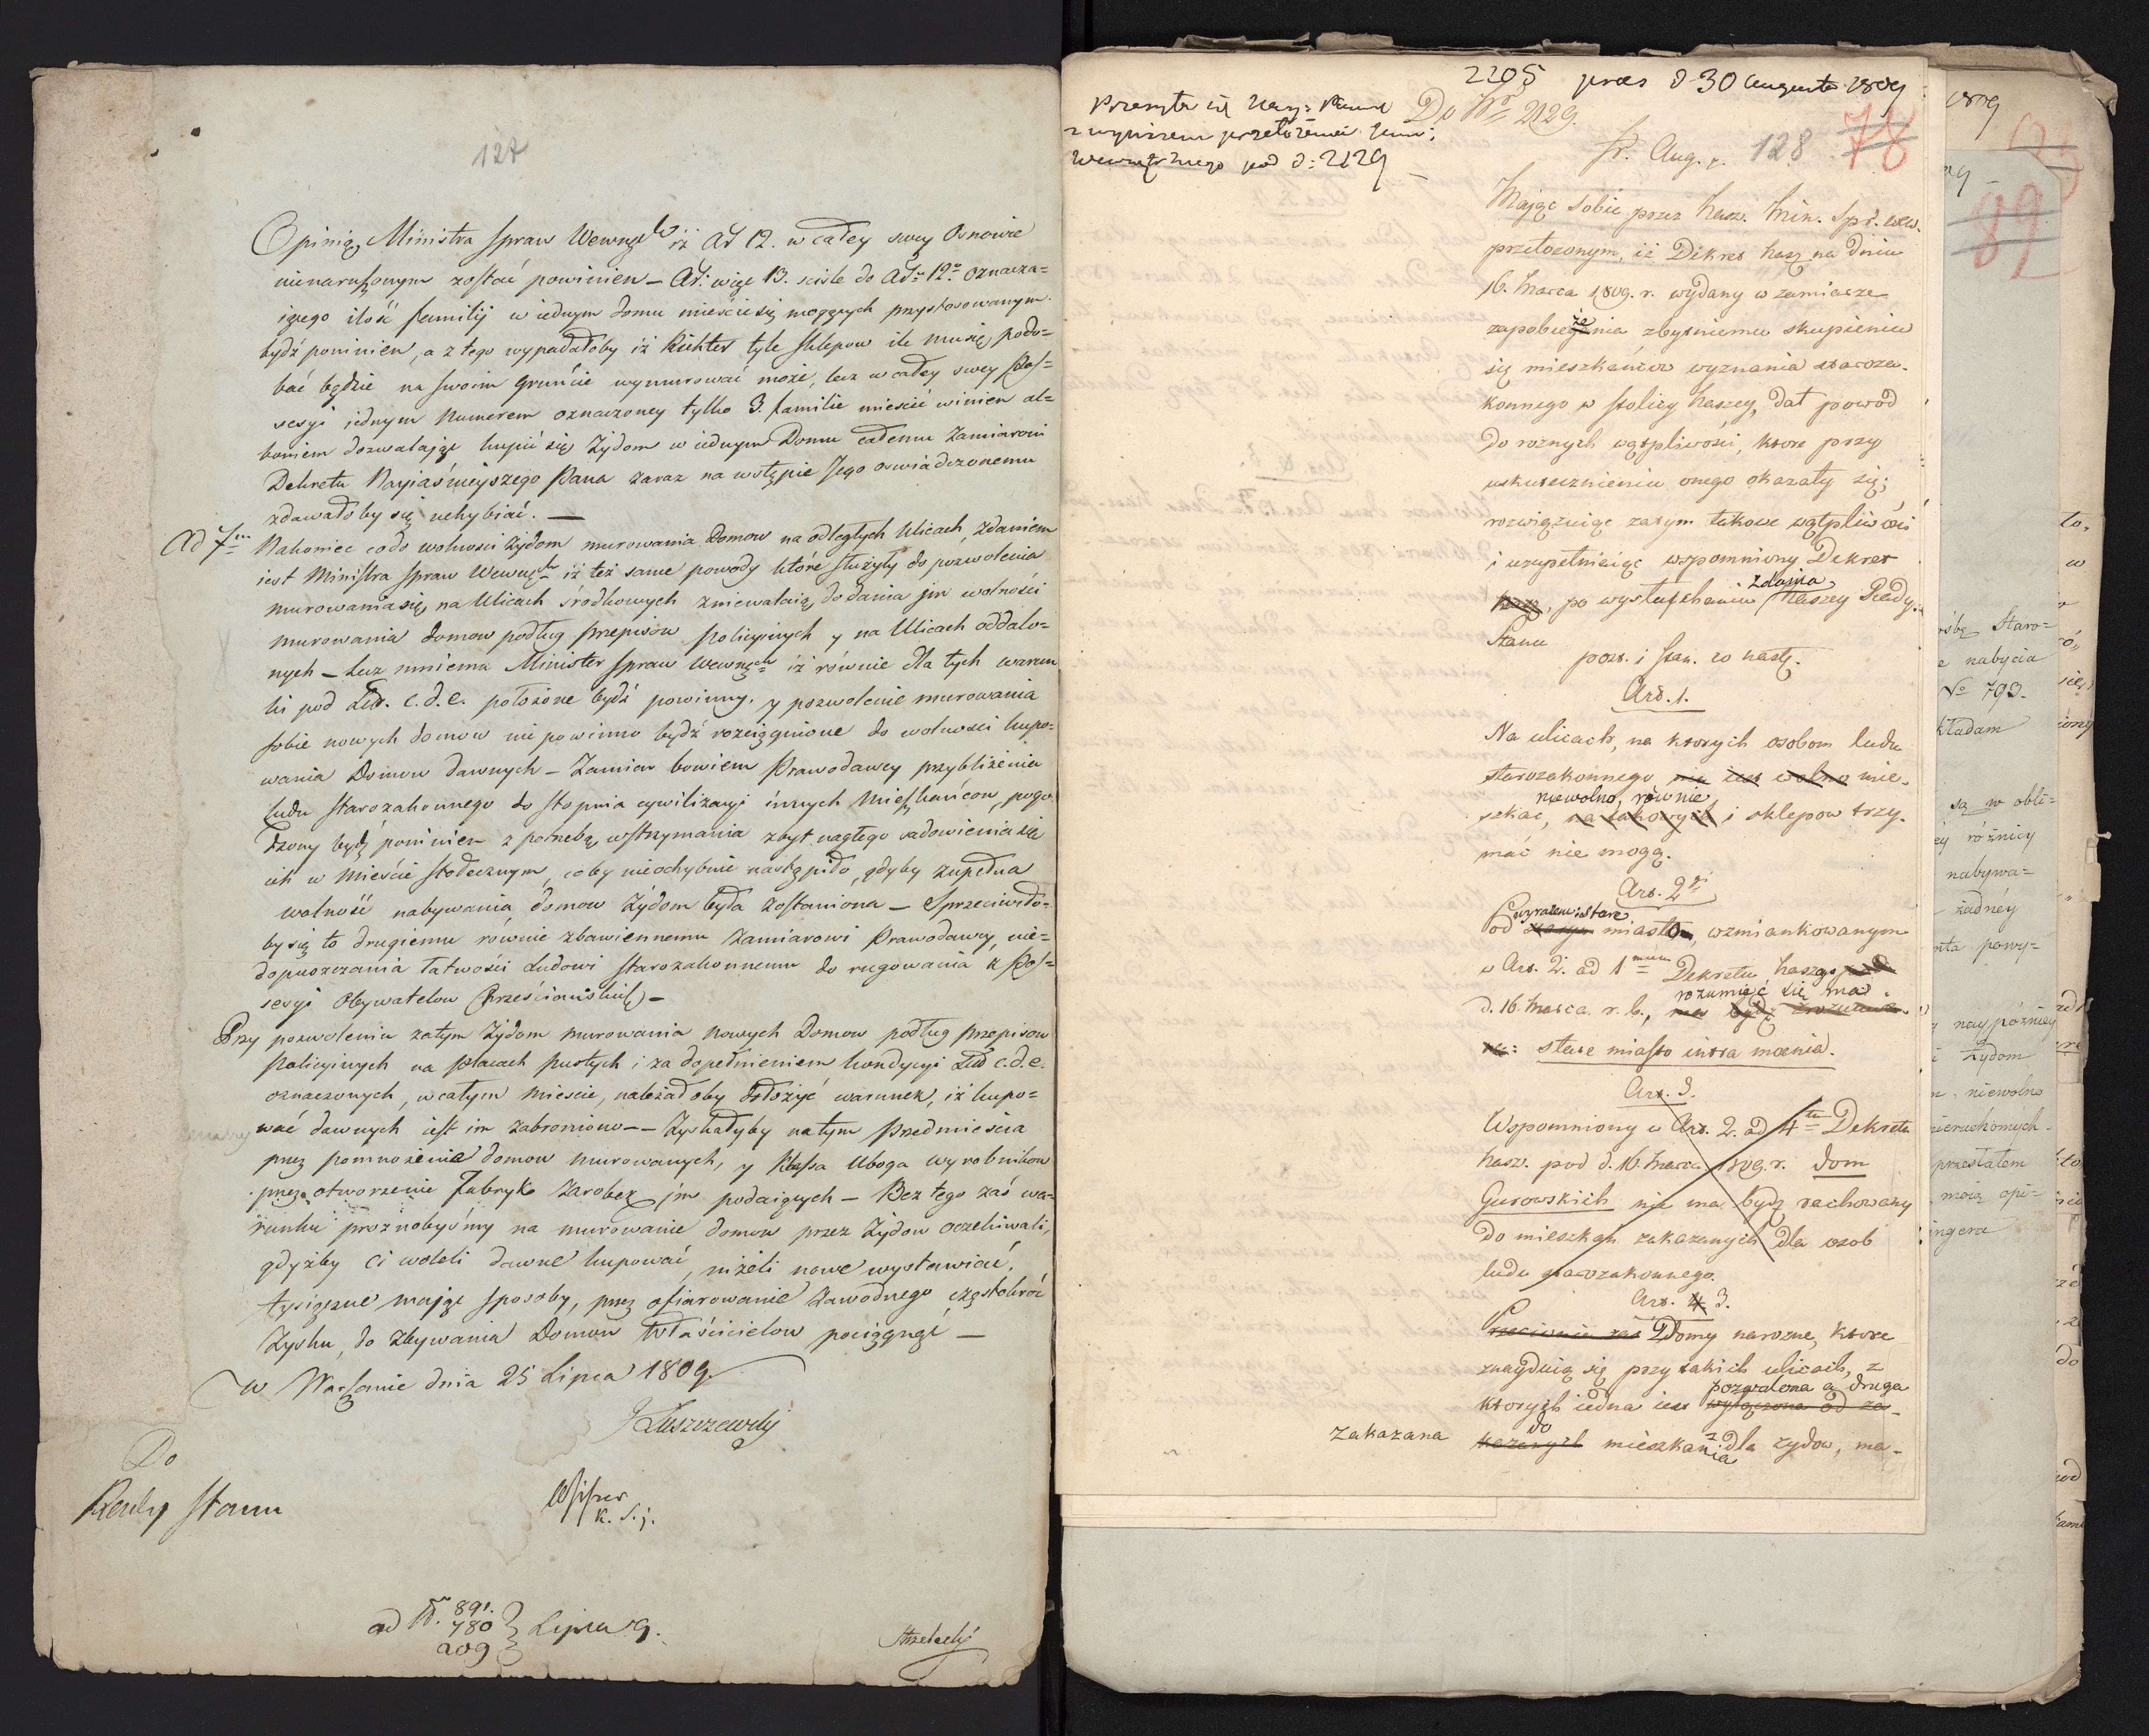 127
Opinią Ministra Spraw Wewnętr iż Art 12. w całey swey Osnowie
nienaruszonym zostać powinien — Art: więc 13. ściśle do Art: 12º oznacza=
iącego ilość familij w iednym domu mieścić się mogących przystosowanym
bydź powinien, a z tego wypadałoby iż Richter tyle sklepow ile mu się podo=
bać będzie na swoim gruńcie wymurować może, lecz w całey swey Pos=
sesyi iednym Numerem oznaczoney tylko 3. familie mieścić winien al=
bowiem dozwalaiąc kupić się Żydom w iednym Domu całemu Zamiarowi
Dekretu Nayiaśnieyszego Pana zaraz na wstępie Jego oswiadczonemu
zdawałoby się uchybiać. —
Ad 7m Nakoniec co do wolnosci Żydom murowania Domow na odległych Ulicach, zdaniem
iest Ministra Spraw Wewnętr iż też same powody które służyły do pozwolenia
murowania się na Ulicach środkowych zniewalaią do dania im wolności
murowania domow podług przepisow Policyinych y na Ulicach oddalo=
nych — Lecz mniema Minister Spraw Wewnętr iż równie dla tych warun
ki pod Litt. c. d. e. położone bydź powinny, y pozwolenie murowania
sobie nowych domow nie powinno bydź rozciągnione do wolności kupo=
wania Domow dawnych — Zamiar bowiem Prawodawcy przybliżenia
Ludu starozakonnego do stopnia cywilizacyi innych Mieszkańcow, pogo
dzony bydź powinien z potrzebą wstrzymania zbyt nagłego sadowienia się
ich w Mieście stołecznym, coby nieochybnie nastąpiło, gdyby zupełna
wolność nabywania domow Żydom była zostawiona — Sprzeciwiło=
by się to drugiemu równie zbawiennemu zamiarowi Prawodawcy, nie=
dopuszczania łatwości Ludowi starozakonnemu do rugowania z Pos=
sesyi Obywatelow Chrześciańskich —
Przy pozwoleniu zatym Żydom murowania nowych Domow podług przepisow
Policyinych na placach pustych i za dopełnieniem kondycyi Litt c. d. e.
oznaczonych, w całym mieście, należałoby dołożyć warunek, iż kupo=
wać dawnych iest im zabroniono — Zyskałyby na tym Przedmieścia
przez pomnożenie domow murowanych, y klassa uboga wyrobnikow
przez otworzenie Fabryk zarobek im podaiących — Bez tego zaś wa=
runku proznobyśmy na murowanie domow przez Żydow oczekiwali,
gdyżby ci woleli dawne kupować, niżeli nowe wystawiać,
tysiączne maiąc sposoby, przez ofiarowanie zawodnego częstokroć
Zysku, do zbywania Domow Właścicielow pociągnąć —
w Warszawie dnia 25 Lipca 1809.
JŁuszczewski
Do
Rady Stanu
K. S. j.
ad N. 891.
780
209 } Lipca 9.
Strzelecki
2205 praes d 30 Augusta 1809
Do Nr 2129.
pod d: 2129 —
Fr. Aug. r. 128 78
Maiąc sobie przez Nasz. Min. Spr. wew.
przełożonym, iż Dekret Nasz na dniu
16. Marca 1809. r. wydany w zamiarze
zapobieżenia zbytniemu skupieniu
się mieszkańcow wyznania staroza=
konnego w stolicy Naszey, dał powod
do rożnych wątpliwości, ktore przy
uskutecznieniu onego okazały się;
rozwiązuiąc zatym takowe wątpliwości
i uzupełniaiąc wspomniony Dekret
Nasz, po wysłuchaniu zdania Naszey Rady
Stanu
post. i stan. co nastę.
Art. 1.
Na ulicach, na ktorych osobom ludu
starozakonnego nie iest wolno mie=
niewolno, równie
szkać, na takowych i sklepow trzy=
mać nie mogą.
Art. 2gi
wyrazem: stare
Pod miasto, wzmiankowanym
w Art. 2. ad 1mum Dekretu Naszego
rozumieć się ma
d. 16. Marca r. b., ma bydź
stare miasto intra moenia.
Art. 3.
Wspomniony w Art. 2. ad 4te Dekretu
Nasz. pod d. 16. Marca 1809. r. dom
Gurowskich nie ma bydź rachowany
do mieszkań zakazanych dla osob
ludu starozakonnego.
Art. 4 3.
Przeciwnie zaś Domy narożne, ktore
znayduią się przy takich ulicach, z
pozwolona a druga
ktorych iedna iest wyłączona od za=
zakazana kazanych do mieszkania dla żydow, ma=
1809
89
rośbę Staro=
nabycia
No 793.
kładam
są w obli=
różnicy
nabywa=
żadnéy
powy=
naypóźniey
Żydom
niewolno
nieruchomych
przesłałem
moią opi=